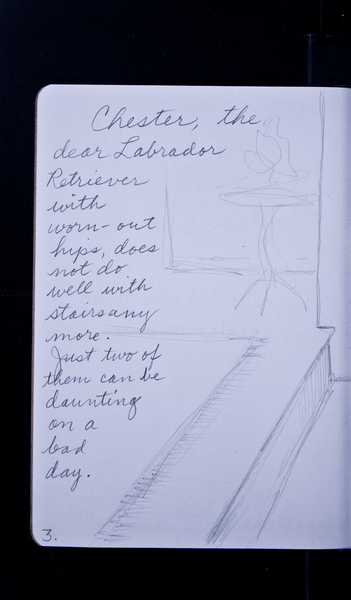 Chester, the
dear Labrador
Retriever
with
worn-out
hips, does
not do
well with
stairs any
more.
Just two of
them can be
daunting
on a
bad
day.
3.